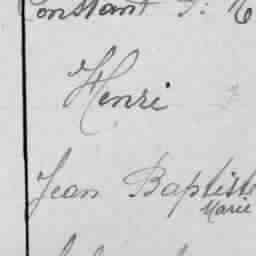 Constant
Henri
Jean Baptiste
Marie